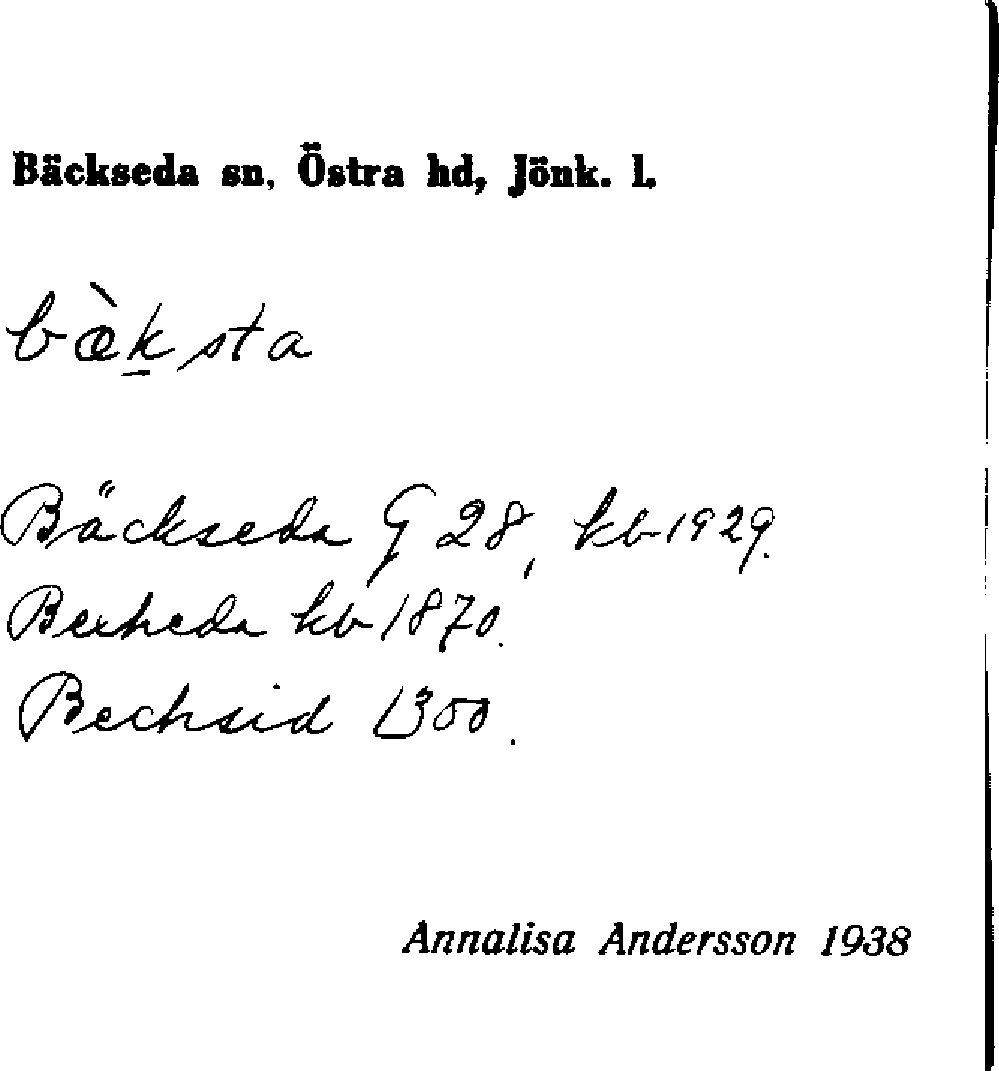 Bäckseda sn, Östra hd, Jönk. l.
bæ̀k̲sta
Bäckseda G 28, kb 1929.
Bexheda kb 1870.
Bechsid 1300.
Annalisa Andersson 1938